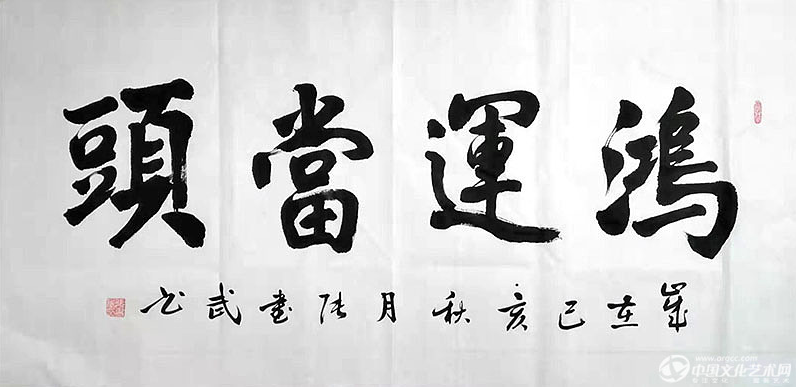 鴻運當頭
歲在己亥秋月張書武书
www.orocc.com
中国文化艺术网